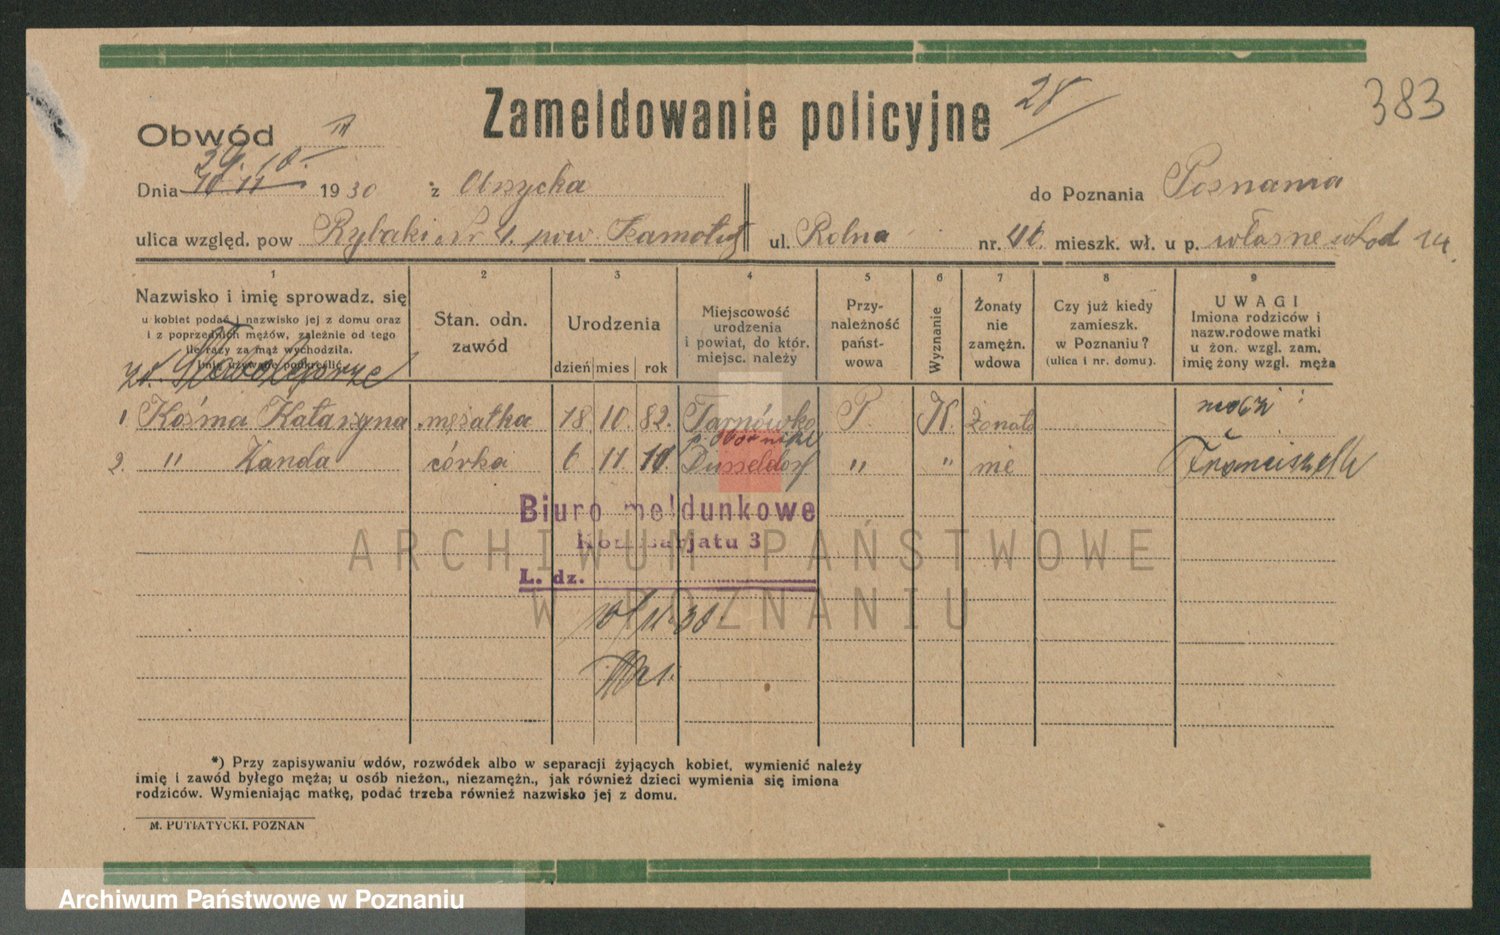 Zameldowanie policyjne 28
383
Obwód III
29. 10.
Dnia 10 11 1930 z Obrzycka do Poznania Poznania
ulica względ. pow Rybaki Nr 4. pow. Szamotuły ul. Rolna nr. 41. mieszk. wł. u p. własne
1 2 3 4 5 6 7 8 9
Nazwisko i imię sprowadz. się
u kobiet podać i nazwisko jej z domu oraz
i z poprzednich mężów, zależnie od tego
ile razy za mąż wychodziła.
Imię używane podkreślić.
Stan. odn.
zawód
Urodzenia
dzień mies rok
Miejscowość
urodzenia
i powiat, do któr.
miejsc. należy
Przy-
należność
państ-
wowa
Wyznanie
Żonaty
nie
zamężn.
wdowa
Czy już kiedy
zamieszk.
w Poznaniu?
(ulica i nr. domu).
UWAGI
Imiona rodziców i
nazw.rodowe matki
u żon. wzgl. zam.
imię żony wzgl. męża
zd.
1 Kośma Katarzyna mężatka 18. 10. 82. Tarnówko P. K. żonata mąż:
p. Oborniki
2. " Wanda córka 6 11 10 Düsseldorf " " nie Franciszek
Biuro meldunkowe
Komisarjatu 3
L. dz.
10/11.30.
*) Przy zapisywaniu wdów, rozwódek albo w separacji żyjących kobiet, wymienić należy
imię i zawód byłego męża; u osób nieżon., niezamężn., jak również dzieci wymienia się imiona
rodziców. Wymieniając matkę, podać trzeba również nazwisko jej z domu.
M. PUTIATYCKI, POZNAŃ
ARCHIWUM PAŃSTWOWE
W POZNANIU
Archiwum Państwowe w Poznaniu